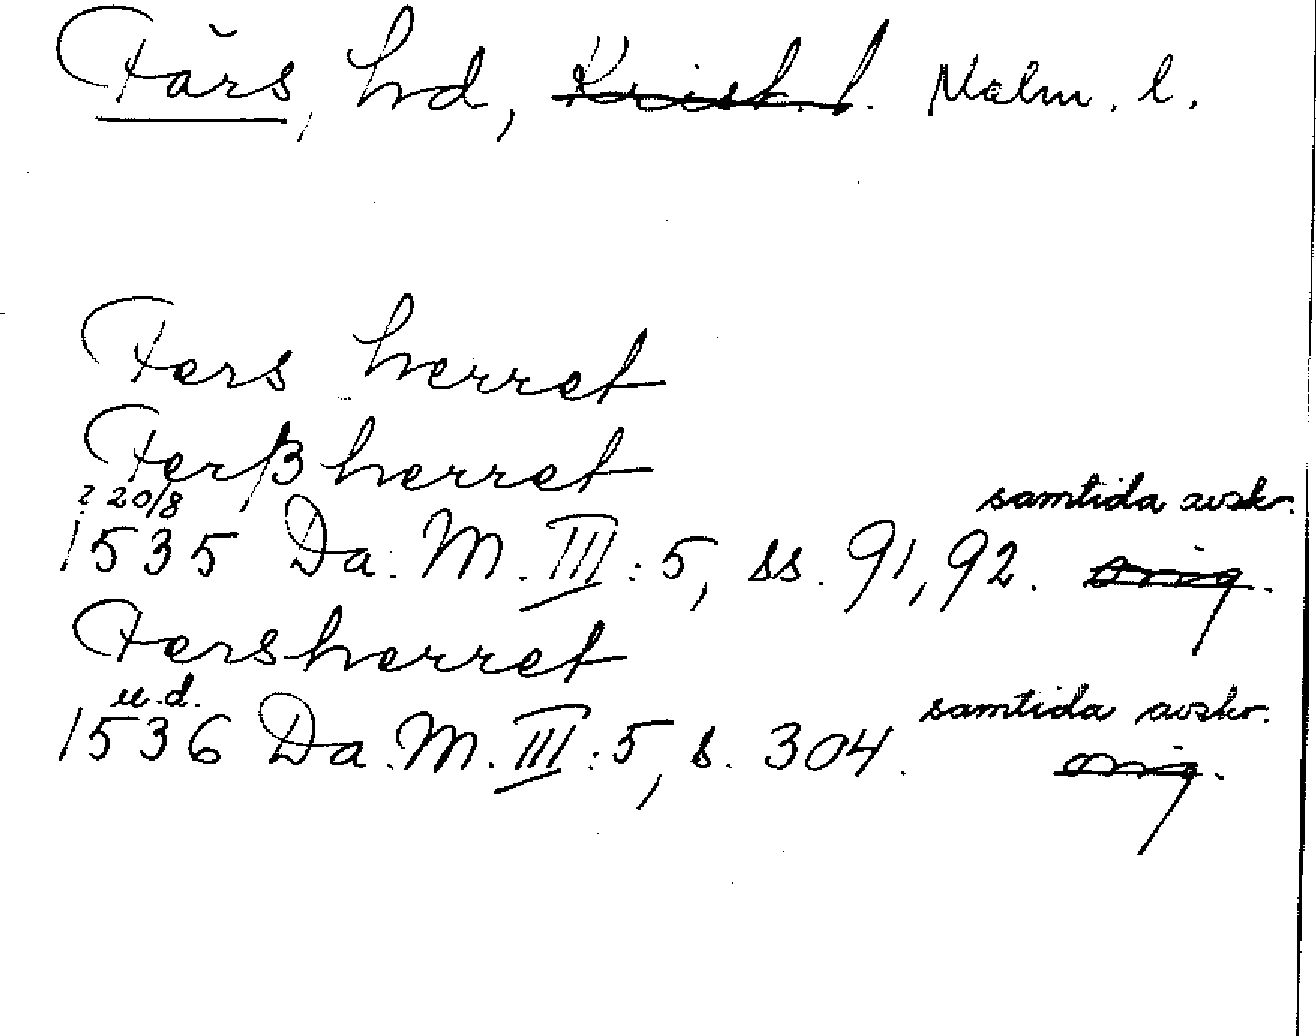 Färs, hd, Krist. l. Malm. l.
Fers herret
Ferß herret
? 20/8 samtida avskr.
1535 Da. M. III : 5, ss. 91, 92. orig.
Fersherret
u. d. samtida avskr.
1536 Da. M. III : 5, s. 304. orig.